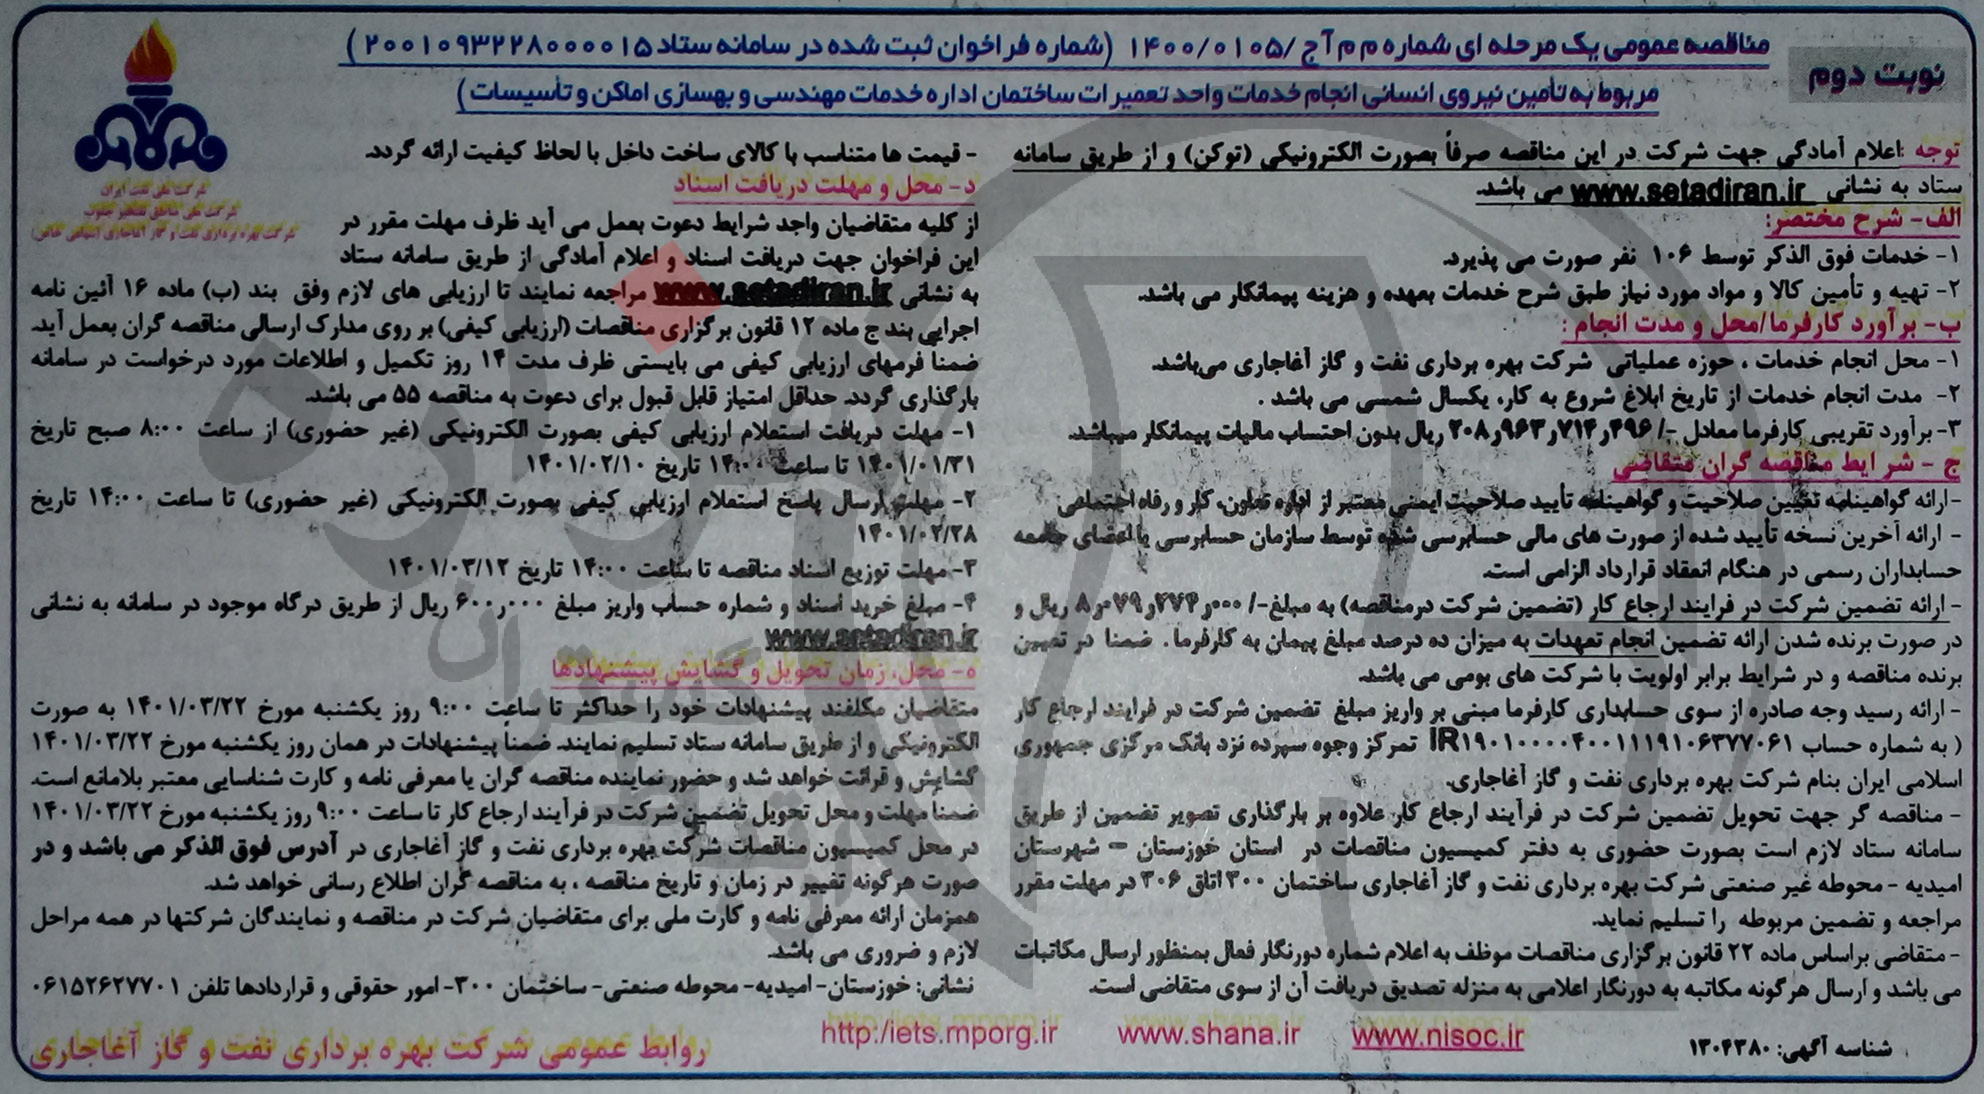 نوبت دوم
مناقصه عمومی یک مرحله ای شماره م م آ ج /۱۴۰۰/۰۱۰۵ (شماره فراخوان ثبت شده در سامانه ستاد ۲۰۰۱۰۹۳۲۲۸۰۰۰۰۱۵)
مربوط به تأمین نیروی انسانی انجام خدمات واحد تعمیرات ساختمان اداره خدمات مهندسی و بهسازی اماکن و تأسیسات)
شرکت ملی نفت ایران
شرکت ملی مناطق نفتخیز جنوب
شرکت بهره برداری نفت و گاز آغاجاری (سهامی خاص)
توجه :اعلام آمادگی جهت شرکت در این مناقصه صرفاً بصورت الکترونیکی (توکن) و از طریق سامانه
ستاد به نشانی www.setadiran.ir می باشد.
الف- شرح مختصر:
۱- خدمات فوق الذکر توسط ۱۰۶ نفر صورت می پذیرد.
۲- تهیه و تأمین کالا و مواد مورد نیاز طبق شرح خدمات بعهده و هزینه پیمانکار می باشد.
ب- برآورد کارفرما/محل و مدت انجام :
۱- محل انجام خدمات ، حوزه عملیاتی شرکت بهره برداری نفت و گاز آغاجاری می‌باشد.
۲- مدت انجام خدمات از تاریخ ابلاغ شروع به کار، یکسال شمسی می باشد .
۳- برآورد تقریبی کارفرما معادل -/۲۰۸٫۹۶۳٫۷۱۴٫۴۹۶ ریال بدون احتساب مالیات پیمانکار میباشد.
ج - شرایط مناقصه گران متقاضی
-ارائه گواهینامه تعیین صلاحیت و گواهینامه تأیید صلاحیت ایمنی معتبر از اداره تعاون، کار و رفاه اجتماعی
- ارائه آخرین نسخه تأیید شده از صورت های مالی حسابرسی شده توسط سازمان حسابرسی یا اعضای جامعه
حسابداران رسمی در هنگام انعقاد قرارداد الزامی است.
- ارائه تضمین شرکت در فرایند ارجاع کار (تضمین شرکت درمناقصه) به مبلغ-/۸٫۰۷۹٫۲۷۴٫۰۰۰ ریال و
در صورت برنده شدن ارائه تضمین انجام تعهدات به میزان ده درصد مبلغ پیمان به کارفرما. ضمنا در تعیین
برنده مناقصه و در شرایط برابر اولویت با شرکت های بومی می باشد.
- ارائه رسید وجه صادره از سوی حسابداری کارفرما مبنی بر واریز مبلغ تضمین شرکت در فرایند ارجاع کار
( به شماره حساب IR۱۹۰۱۰۰۰۰۴۰۰۱۱۱۹۱۰۶۳۷۷۰۶۱ تمرکز وجوه سپرده نزد بانک مرکزی جمهوری
اسلامی ایران بنام شرکت بهره برداری نفت و گاز آغاجاری.
- مناقصه گر جهت تحویل تضمین شرکت در فرآیند ارجاع کار علاوه بر بارگذاری تصویر تضمین از طریق
سامانه ستاد لازم است بصورت حضوری به دفتر کمیسیون مناقصات در استان خوزستان – شهرستان
امیدیه - محوطه غیر صنعتی شرکت بهره برداری نفت و گاز آغاجاری ساختمان ۳۰۰ اتاق ۳۰۶ در مهلت مقرر
مراجعه و تضمین مربوطه را تسلیم نماید.
- متقاضی براساس ماده ۲۲ قانون برگزاری مناقصات موظف به اعلام شماره دورنگار فعال بمنظور ارسال مکاتبات
می باشد و ارسال هرگونه مکاتبه به دورنگار اعلامی به منزله تصدیق دریافت آن از سوی متقاضی است.
- قیمت ها متناسب با کالای ساخت داخل با لحاظ کیفیت ارائه گردد.
د- محل و مهلت دریافت اسناد
از کلیه متقاضیان واجد شرایط دعوت بعمل می آید ظرف مهلت مقرر در
این فراخوان جهت دریافت اسناد و اعلام آمادگی از طریق سامانه ستاد
به نشانی www.setadiran.ir مراجعه نمایند تا ارزیابی های لازم وفق بند (ب) ماده ۱۶ آئین نامه
اجرایی بند ج ماده ۱۲ قانون برگزاری مناقصات (ارزیابی کیفی) بر روی مدارک ارسالی مناقصه گران بعمل آید.
ضمنا فرمهای ارزیابی کیفی می بایستی ظرف مدت ۱۴ روز تکمیل و اطلاعات مورد درخواست در سامانه
بارگذاری گردد. حداقل امتیاز قابل قبول برای دعوت به مناقصه ۵۵ می باشد.
۱- مهلت دریافت استعلام ارزیابی کیفی بصورت الکترونیکی (غیر حضوری) از ساعت ۸:۰۰ صبح تاریخ
۱۴۰۱/۰۱/۳۱ تا ساعت ۱۴:۰۰ تاریخ ۱۴۰۱/۰۲/۱۰
۲- مهلت ارسال پاسخ استعلام ارزیابی کیفی بصورت الکترونیکی (غیر حضوری) تا ساعت ۱۴:۰۰ تاریخ
۱۴۰۱/۰۲/۲۸
۳- مهلت توزیع اسناد مناقصه تا ساعت ۱۴:۰۰ تاریخ ۱۴۰۱/۰۳/۱۲
۴- مبلغ خرید اسناد و شماره حساب واریز مبلغ ۶۰۰٫۰۰۰ ریال از طریق درگاه موجود در سامانه به نشانی
www.setadiran.ir
ه- محل، زمان تحویل و گشایش پیشنهادها
متقاضیان مکلفند پیشنهادات خود را حداکثر تا ساعت ۹:۰۰ روز یکشنبه مورخ ۱۴۰۱/۰۳/۲۲ به صورت
الکترونیکی و از طریق سامانه ستاد تسلیم نمایند. ضمناً پیشنهادات در همان روز یکشنبه مورخ ۱۴۰۱/۰۳/۲۲
گشایش و قرائت خواهد شد و حضور نماینده مناقصه گران با معرفی نامه و کارت شناسایی معتبر بلامانع است.
ضمناً مهلت و محل تحویل تضمین شرکت در فرآیند ارجاع کار تا ساعت ۹:۰۰ روز یکشنبه مورخ ۱۴۰۱/۰۳/۲۲
در محل کمیسیون مناقصات شرکت بهره برداری نفت و گاز آغاجاری در آدرس فوق الذکر می باشد و در
صورت هرگونه تغییر در زمان و تاریخ مناقصه ، به مناقصه گران اطلاع رسانی خواهد شد.
همزمان ارائه معرفی نامه و کارت ملی برای متقاضیان شرکت در مناقصه و نمایندگان شرکتها در همه مراحل
لازم و ضروری می باشد.
نشانی: خوزستان- امیدیه- محوطه صنعتی- ساختمان ۳۰۰- امور حقوقی و قراردادها تلفن ۰۶۱۵۲۶۲۷۷۰۱
شناسه آگهی: ۱۳۰۴۳۸۰
www.nisoc.ir www.shana.ir http:/iets.mporg.ir
روابط عمومی شرکت بهره برداری نفت و گاز آغاجاری